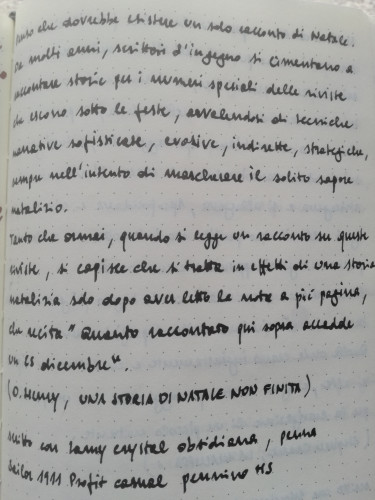 tanto che dovrebbe esistere un solo racconto di Natale.
Da molti anni, scrittori d'ingegno si cimentano a
raccontare storie per i numeri speciali delle riviste
che escono sotto le feste, avvalendosi di tecniche
narrative sofisticate, evasive, indirette, strategiche,
sempre nell'intento di mascherare il solito sapore
natalizio.
Tanto che ormai, quando si legge un racconto su queste
riviste, si capisce che si tratta in effetti di una storia
natalizia solo dopo aver letto la nota a piè pagina,
che recita "Quanto raccontato qui sopra accadde
un 25 dicembre".
(O. Henry, UNA STORIA DI NATALE NON FINITA)
scritto con Lamy crystal obsidiana, penna
Sailor 1911 Profit casual pennino HS